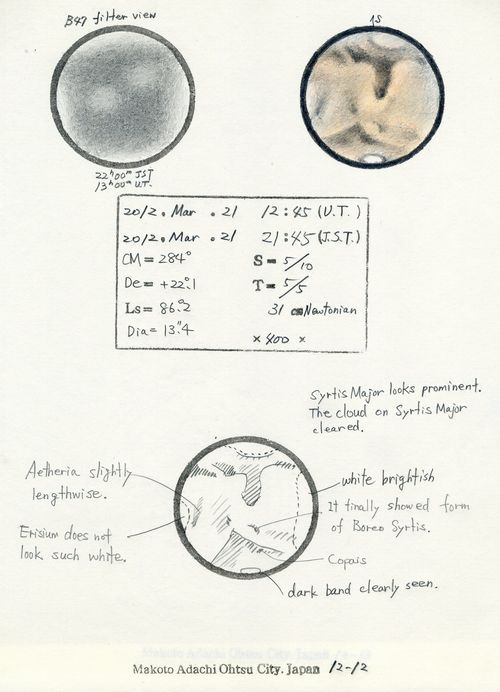 B47 filter view
1S
22h00m JST
13h00m U.T.
2012. Mar. 21 12:45 (U.T.)
2012. Mar. 21 21:45 (J.S.T.)
CM = 284° S = 5/10
De = +22.°1 T = 5/5
Ls = 86.°2 31 cm Newtonian
Dia = 13."4 × 400 ×
Syrtis Major looks prominent.
The cloud on Syrtis Major
cleared.
Aetheria slightly
lengthwise.
white brightish
It finally showed form
of Boreo Syrtis.
Erisium does not
look such white.
Copais
dark band clearly seen.
Makoto Adachi Ohtsu City. Japan 12-12